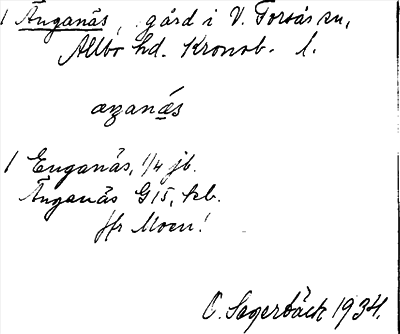 1 Änganäs, gård i V. Torsås sn,
Allbo hd. Kronob. l.
aŋanäs
1 Enganäs, 1/4 jb.
Änganäs G15, kb.
jfr Moen!
C. Segerbäck 1934.